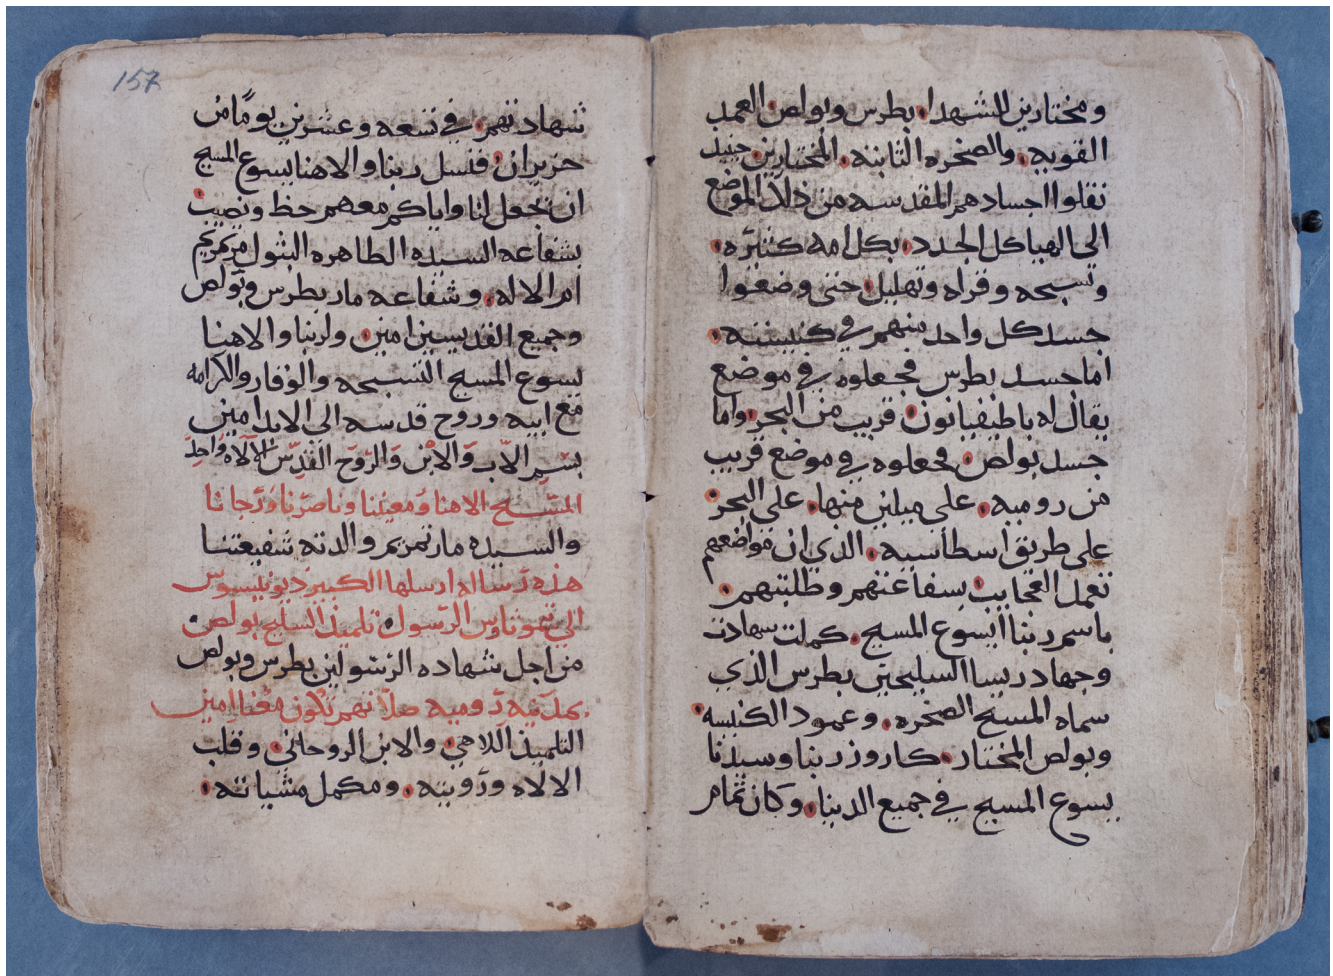 ومختارين للشهدا. بطرس وبولص العمد
القويه. والصخره الثابته. المختارين حينيد
نقلوا اجسادهم المقدسه من ذلك الموضع
الى الهياكل الجدد. بكرامه كتيره.
وتسبحه وقراه وتهليل. حتى وضعوا
جسد كل واحد منهم في كنيسته.
اما جسد بطرس فجعلوه في موضع
يقال له باطيفيانون. قريب من البحر. واما
جسد بولص. فجعلوه في موضع قريب
من روميه. على ميلين منها. على البحر.
على طريق اسطاسيه. الدي ان مواضعهم
تعمل العجايب. بسفاعتهم وطلبتهم.
باسم ربنا ايسوع المسيح. كملت سهادت
وجهاد ريسا السليحين بطرس الذي
سماه المسيح الصخره. وعمود الكنيسه.
وبولص المختار. كاروز ربنا وسيدنا
يسوع المسيح في جميع الدنيا. وكان تمام
157
شهادتهم. في تسعه وعشرين يومًا من
حزيران. فنسل ربنا والاهنا يسوع المسيح
ان يجعل لنا واياكم معهم حظ ونصيب.
بشفاعه السيده الطاهره البتول مرتمريم
ام الاله. وشفاعه مار بطرس وبولص
وجميع القديسين امين. ولربنا والاهنا
يسوع المسيح التسبحه والوقار والكرامه
مع ابيه وروح قدسه الى الابد امين
بسم الاب والابن والروح القدس الالاه واحد
المسيح الاهنا ومعيننا وناصرنا ورجانا
والسيده مارتمريم والدته شفيعتنا
هذه رساله ارسلها الكبير ديونيسوس
الي تيموتاوس الرسول تلميذ السليح بولص.
من اجل شهاده الرسولين بطرس وبولص
بمدينه روميه صلاتهم تكون معنا امين
التلميذ اللاهي. والابن الروحاني. وقلب
الالاه وروبته. ومكمل مشياته.